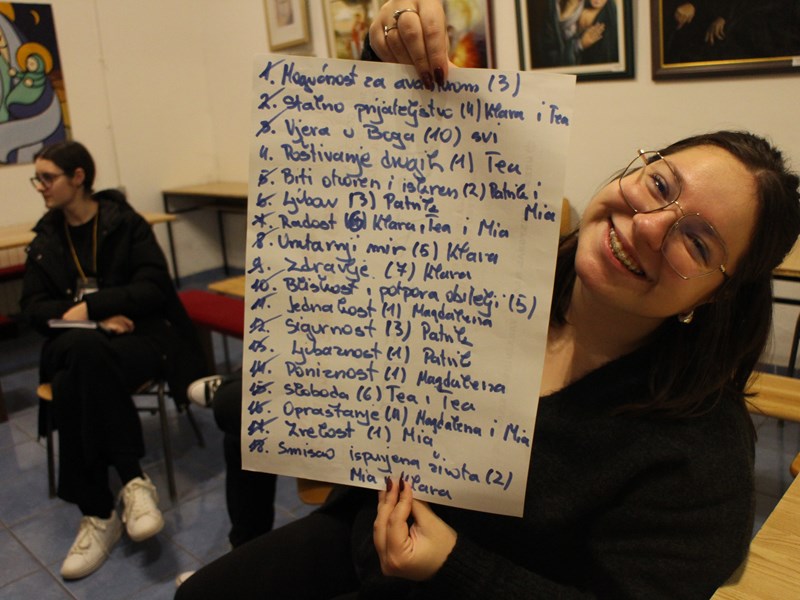 1. Mogućnost za avanturom (3)
2. Stalno prijateljstvo (4) Klara i Tea
3. Vjera u Boga (10) svi
4. Poštivanje drugih (1) Tea
5. Biti otvoren i iskren (2) Patrik i
Mia
6. Ljubav (3) Patrik
7. Radost (6) Klara, Tea i Mia
8. Unutarnji mir (5) Klara
9. Zdravlje (7) Klara
10. Bliskost i potpora obitelji (5)
11. Jednakost (1) Magdalena
12. Sigurnost (3) Patrik
13. Ljubaznost (1) Patrik
14. Poniznost (1) Magdalena
15. Sloboda (6) Tea i Tea
16. Opraštanje (4) Magdalena i Mia
17. Zrelost (1) Mia
18. Smisao ispunjena života (2)
Mia Klara